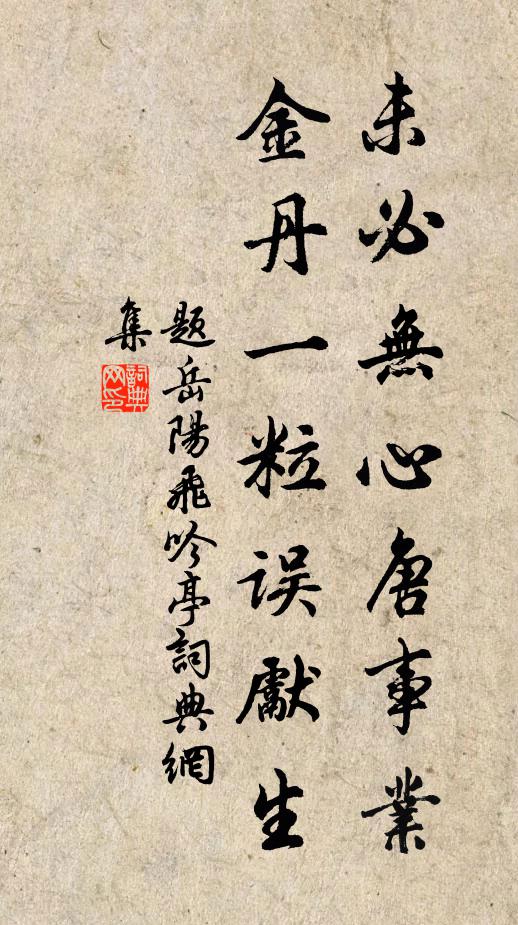 未必無心唐事業
金丹一粒误獻生
題岳陽飛吟亭詞典網
集
詞典
网印